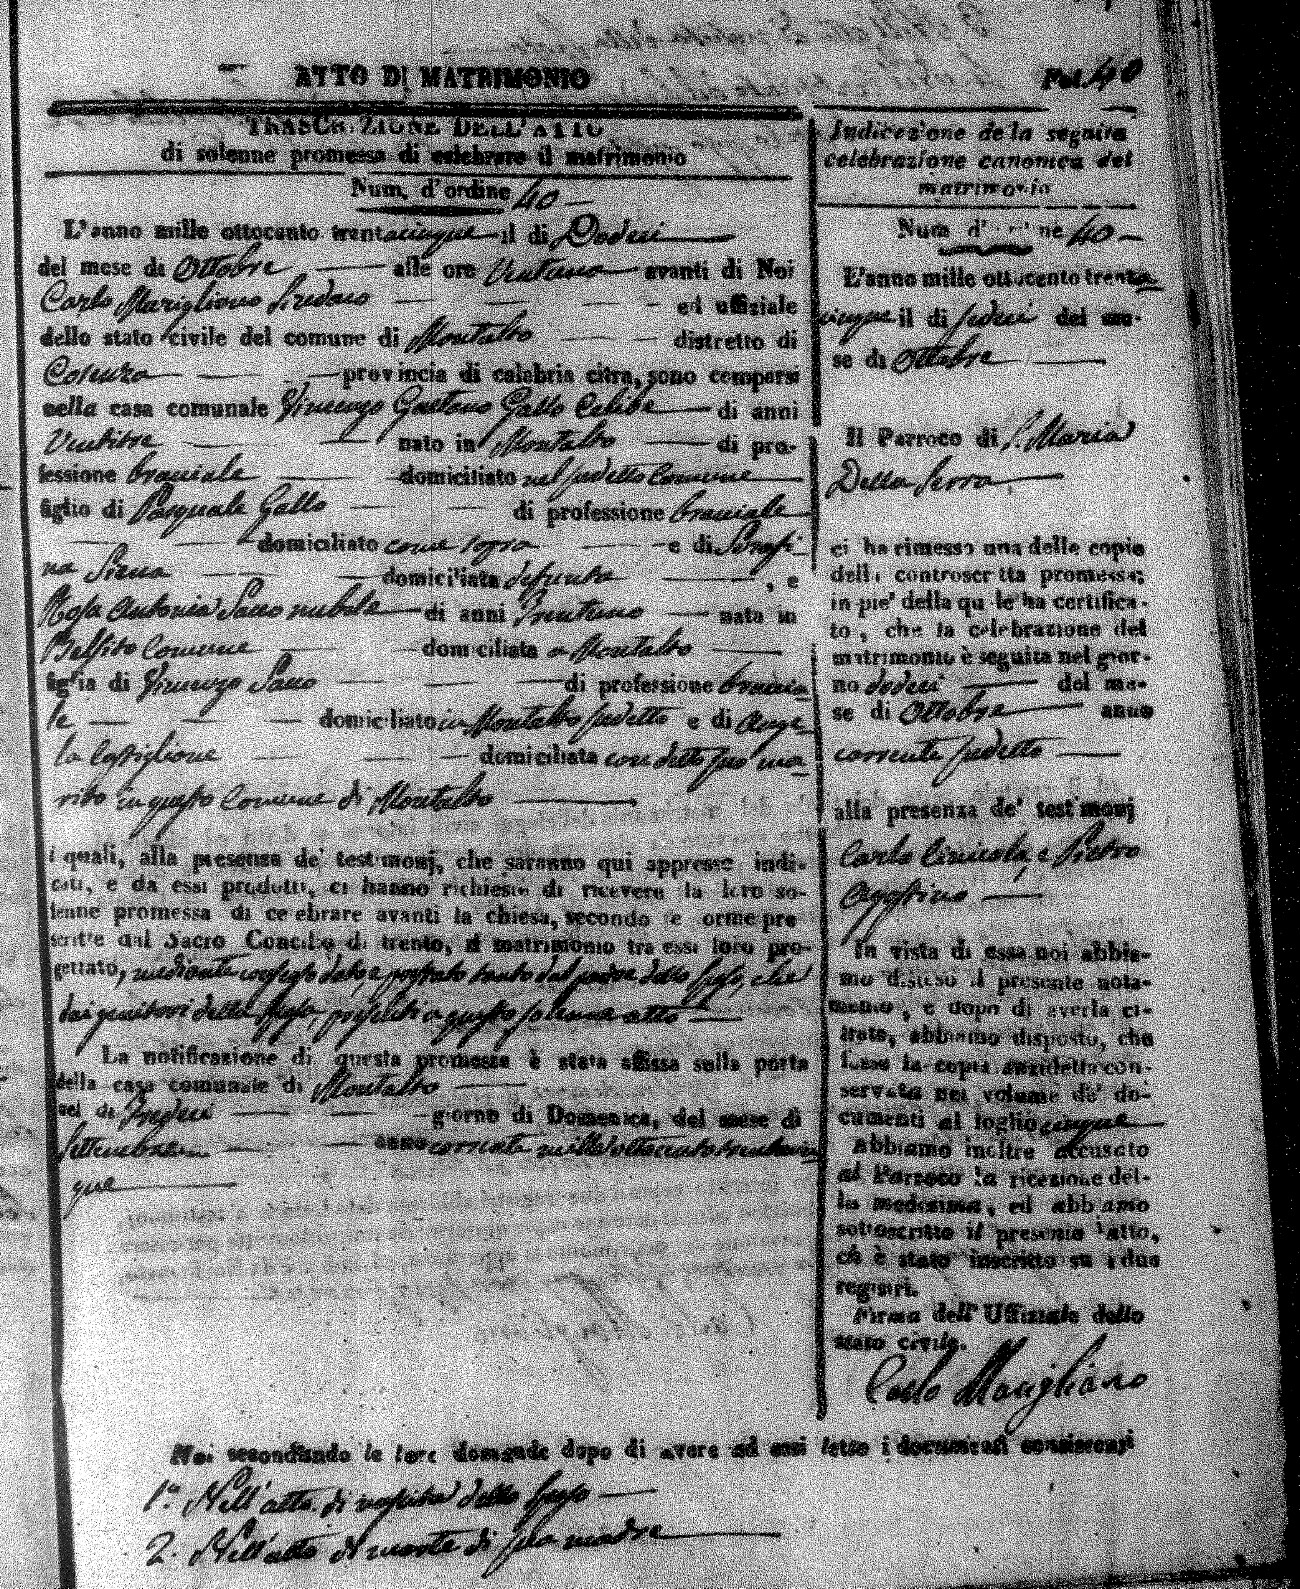 ATTO DI MATRIMONIO
Fol. 40
TRASCRIZIONE DELL'ATTO
di solenne promessa di celebrare il matrimonio
Num. d'ordine 40
L'anno mille ottocento trentacinque il di Dodeci
del mese di Ottobre alle ore Ventuno avanti di Noi
Carlo Marigliano Sindaco ed uffiziale
dello stato civile del comune di Montalto distretto di
Cosenza provincia di calabria citra, sono comparsi
nella casa comunale Vincenzo Gaetano Gallo Celibe di anni
Ventitre nato in Montalto di pro-
fessione bracciale domiciliato nel sudetto Comune
figlio di Pasquale Gallo di professione bracciale
domiciliato come sopra e di Serafi-
na Sirena domiciliata defunta, e
Rosa Antonia Sacco nubile di anni Trentuno nata in
Belsito Comune domiciliata a Montalto
figlia di Vincenzo Sacco di professione braccia-
le domiciliato in Montalto sudetto e di Ange-
la Castiglione domiciliata con detto suo ma-
rito in questo Comune di Montalto
i quali, alla presenza de' testimonj, che saranno qui appresso indi-
cati, e da essi prodotti, ci hanno richiesto di ricevere la loro so-
lenne promessa di celebrare avanti la chiesa, secondo le forme pre
scritte dal Sacro Concilio di trento, il matrimonio tra essi loro pro-
gettato, mediante consenso dato, e prestato tanto dal padre dello sposo, che
dai genitori della sposa, presenti a questo solenne atto
La notificazione di questa promessa è stata affissa sulla porta
della casa comunale di Montalto
nel di Tredeci giorno di Domenica, del mese di
Settembre anno corrente mille ottocento trentacin-
que
Indicazione della seguita
celebrazione canonica del
matrimonio
Num d'ordine 40
L'anno mille ottocento trenta
cinque il di sudeci del me-
se di Ottobre
Il Parroco di S. Maria
Della Serra
ci ha rimesso una delle copie
della controscritta promessa;
in pie' della quale ha certifica-
to, che la celebrazione del
matrimonio è seguita nel gior-
no dodeci del me-
se di Ottobre anno
corrente sudetto
alla presenza de' testimonj
Carlo Cinicola, e Pietro
Agostino
In vista di essa noi abbia-
mo disteso il presente nota-
mento, e dopo di averla ci-
frata, abbiamo disposto, che
fusse la copia anzidetta con-
servata nel volume de' do-
cumenti al foglio cinque
Abbiamo inoltre accusato
al Parroco la ricezione del-
la medesima, ed abbiamo
sottoscritto il presente atto,
ch è stato inscritto su i due
registri.
Firma dell' Uffiziale dello
stato civile.
Carlo Marigliano
Noi secondando le loro domande dopo di avere ad essi letto i documenti consistenti
1.° Nell'atto di nascita dello sposo
2. Nell'atto di morte di sua madre